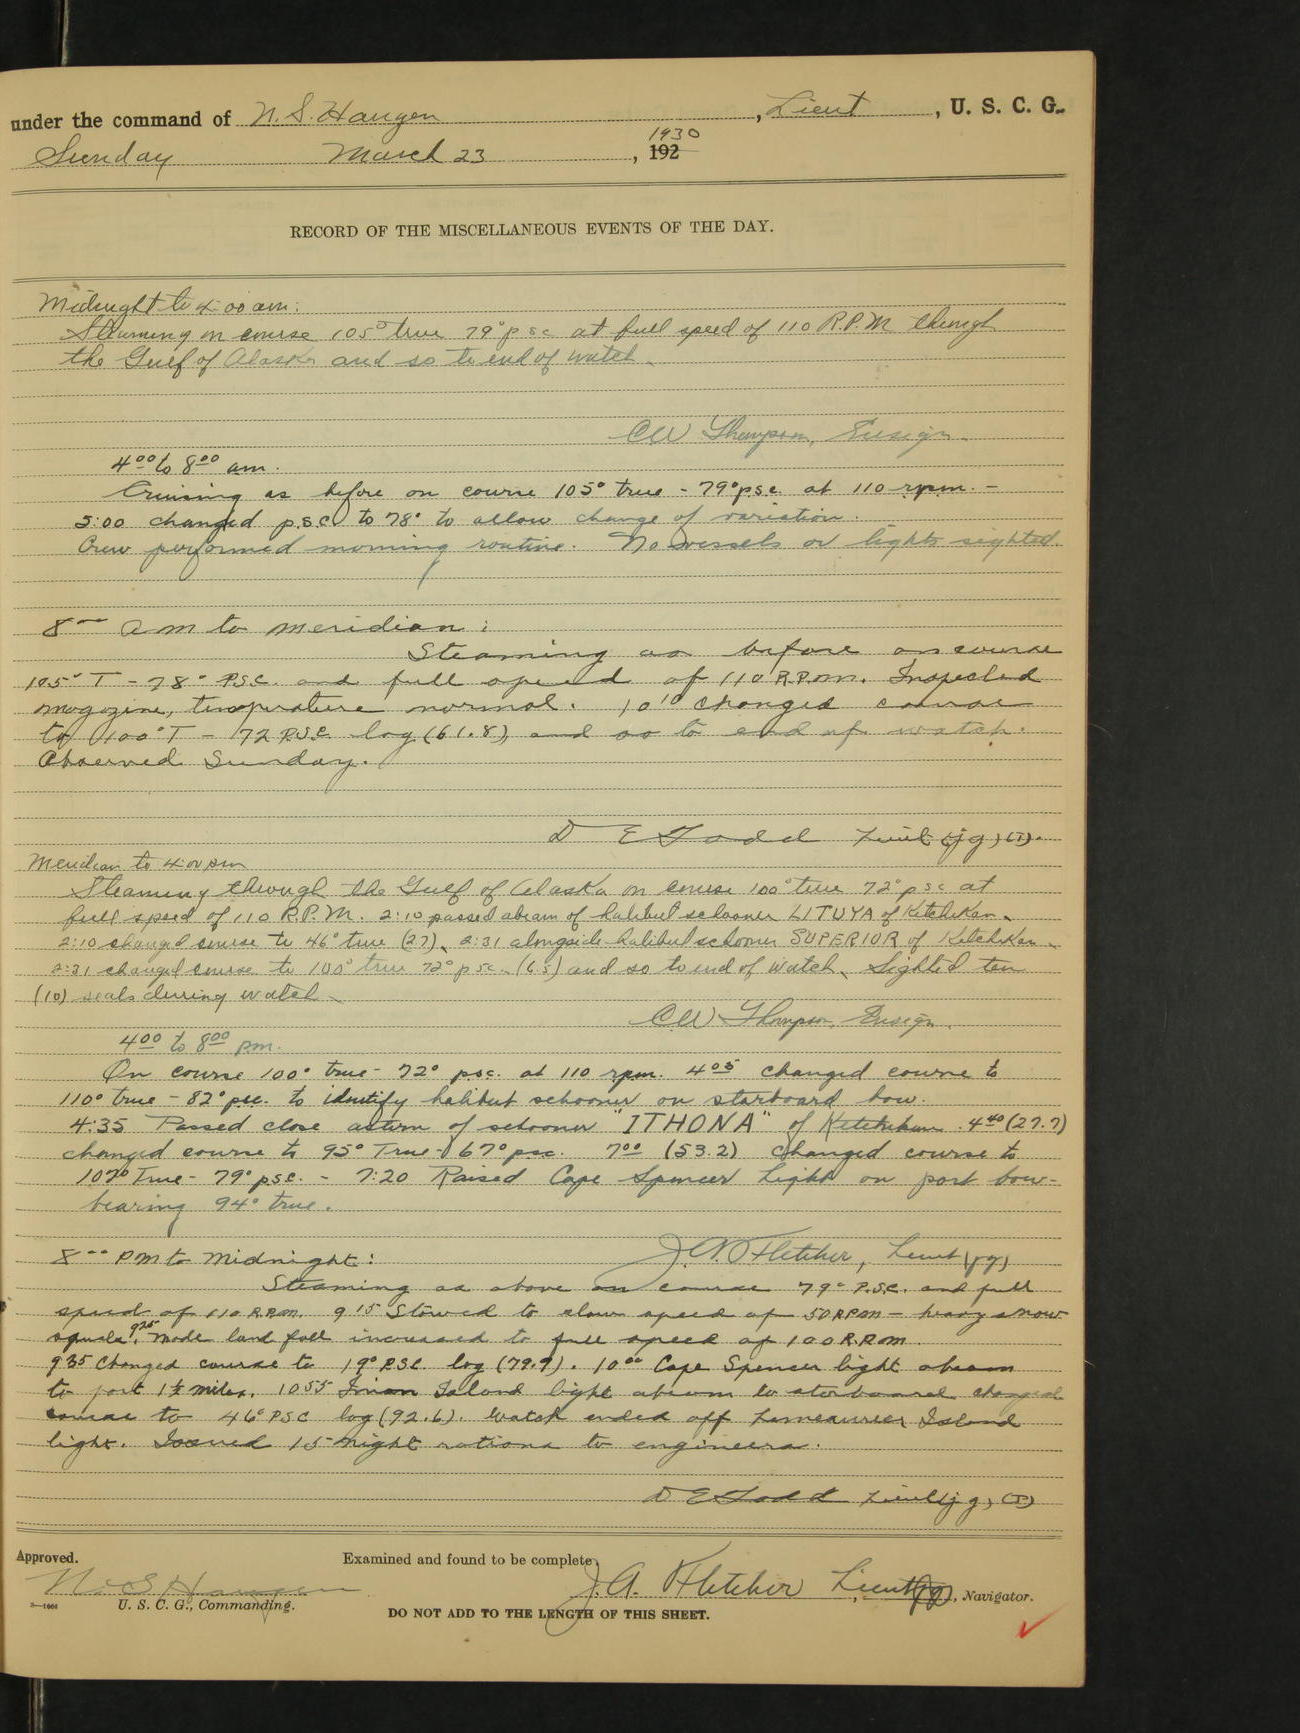 under the command of N. S. Haugen, Lieut, U. S. C. G.
Sunday March 23, 192 1930
RECORD OF THE MISCELLANEOUS EVENTS OF THE DAY.
Midnight to 4:00 am:
Steaming on course 105° true 79° psc at full speed of 110 R.P.M through
the Gulf of Alaska and so to end of watch.
CW Thompson, Ensign.
4⁰⁰ to 8⁰⁰ am.
Cruising as before on course 105° true - 79° psc. at 110 rpm. -
5:00 changed p.s.c. to 78° to allow change of variation.
Crew performed morning routine. No vessels or lights sighted.
8⁰⁰ am to meridian:
Steaming as before on course
105° T - 78° P.S.C. and full speed of 110 R.P.m. Inspected
magazine, temperature normal. 10¹⁰ changed course
to 100° T - 72 P.S.C. log (61.8) and so to end of watch.
Observed Sunday.
D E Todd Lieut (jg) (T).
Meridian to 4:00 pm
Steaming through the Gulf of Alaska on course 100° true 72° psc at
full speed of 110 R.P.M. 2:10 passed abeam of halibut schooner LITUYA of Ketchikan.
2:10 changed course to 46° true (27). 2:31 alongside halibut schooner SUPERIOR of Ketchikan.
2:31 changed course to 100° true 72° psc. (6.5) and so to end of watch. Sighted ten
(10) seals during watch.
CW Thompson, Ensign.
4⁰⁰ to 8⁰⁰ pm.
On course 100° true - 72° psc. at 110 rpm. 4⁰⁵ changed course to
110° true - 82° psc. to identify halibut schooner on starboard bow.
4:35 Passed close astern of schooner "ITHONA" of Ketchikan. 4⁴⁰ (27.7)
changed course to 95° True - 67° psc. 7⁰⁰ (53.2) changed course to
107° True - 79° psc. - 7:20 Raised Cape Spencer Light on port bow -
bearing 94° true.
J. A. Fletcher, Lieut (jg)
8⁰⁰ PM to Midnight:
Steaming as above on course 79° P.S.C. and full
speed of 110 R.P.m. 9¹⁵ Slowed to slow speed of 50 RPM - heavy snow
squals. 9²⁵ Made land fall increased to full speed of 100 R.P.M.
9³⁵ Changed course to 19° P.S.C. log (79.9). 10⁰⁰ Cape Spencer light abeam
to port 1½ miles. 10⁵⁵ Inian Island light abeam to starboard changed
course to 46° PSC log (92.6). Watch ended off Lemesurier Island
light. Issued 15 night rations to engineers.
D E Todd Lieut (jg) (T)
Approved.
N. S. Haugen
U. S. C. G., Commanding.
Examined and found to be complete
J. A. Fletcher Lieut (jg), Navigator.
DO NOT ADD TO THE LENGTH OF THIS SHEET.